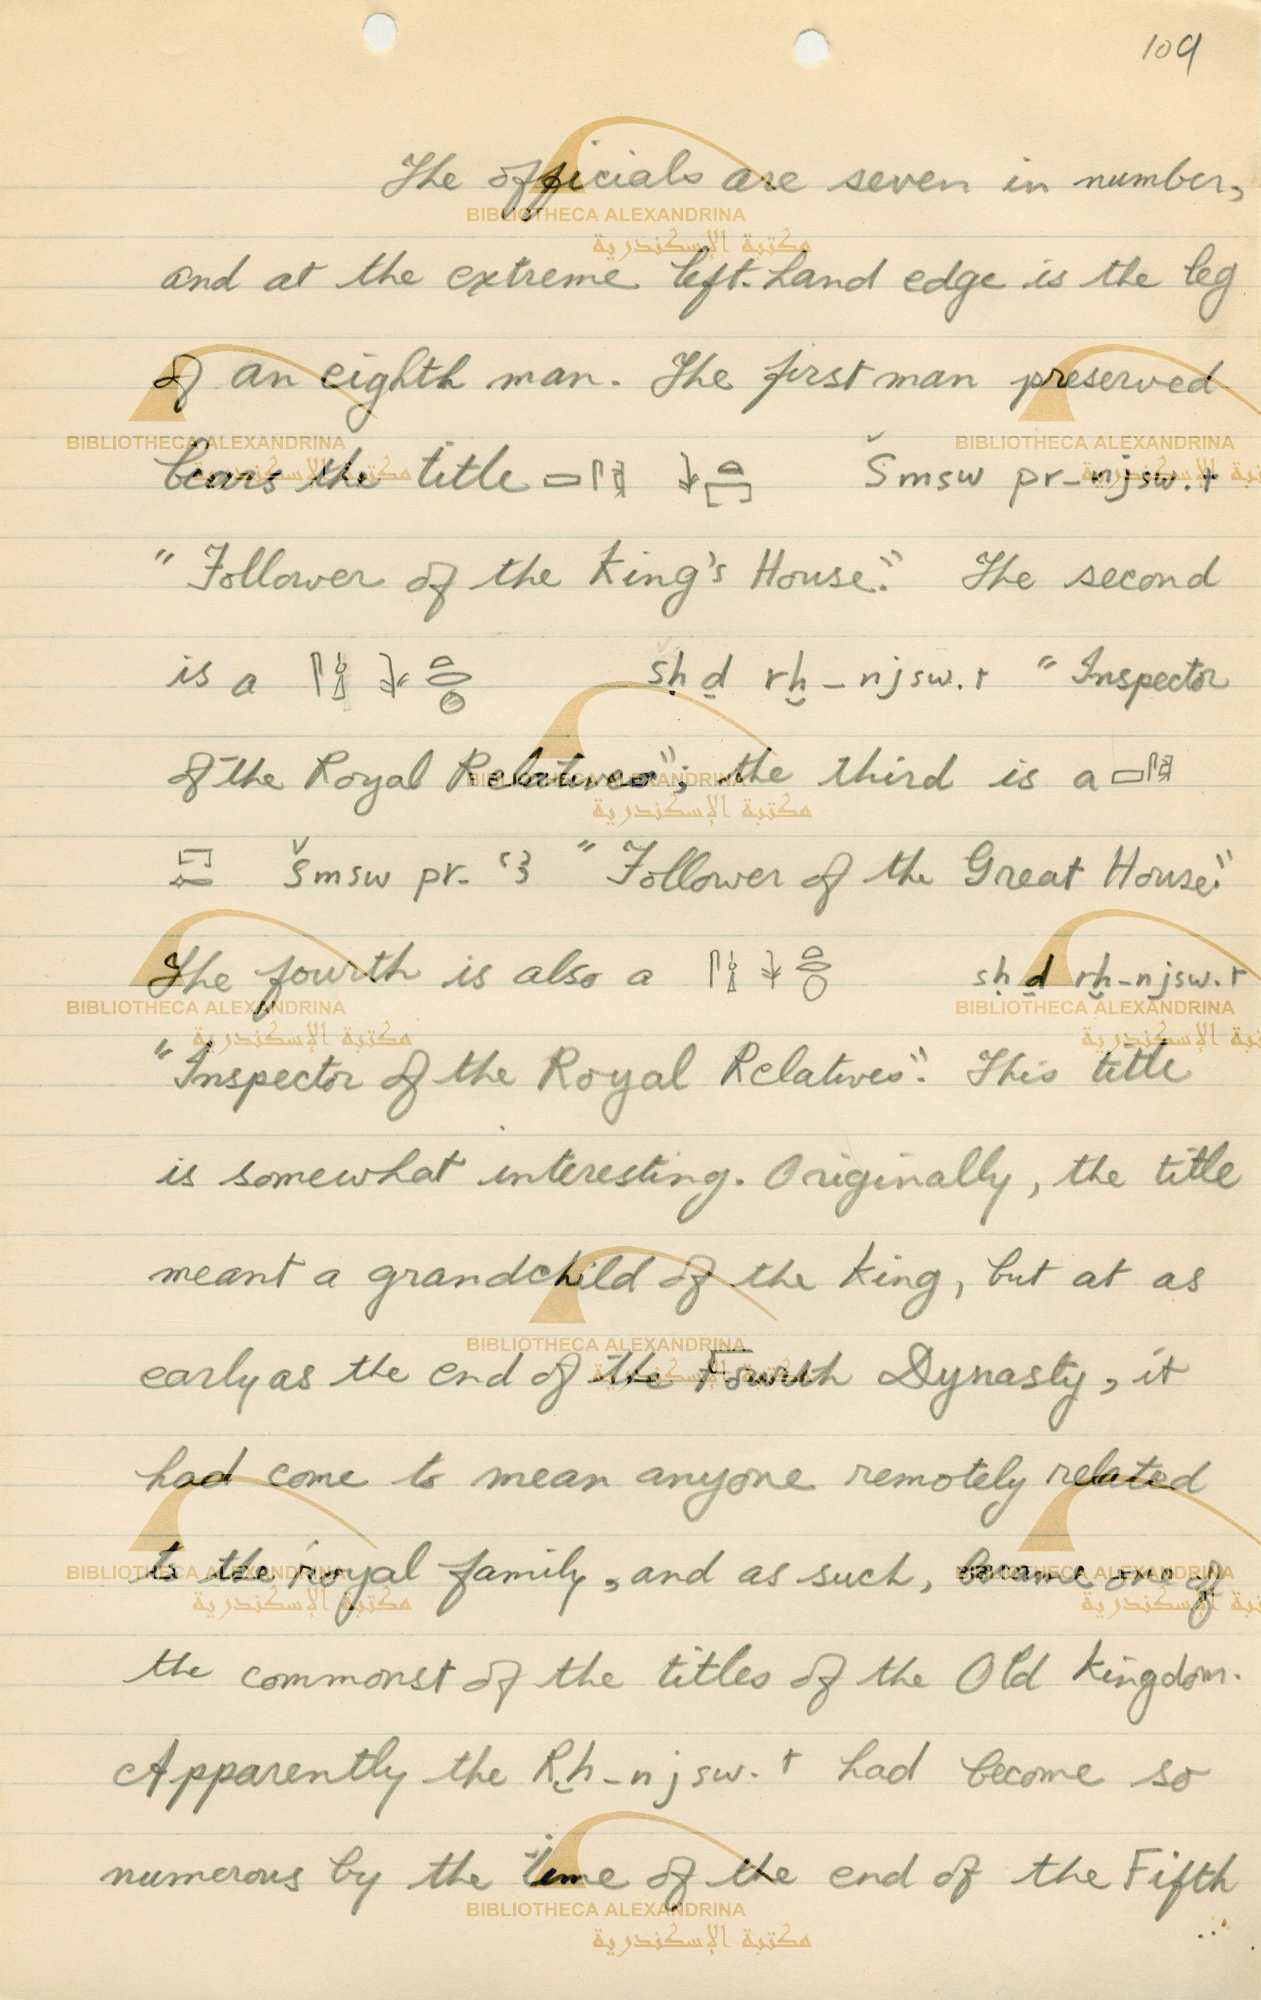 109
The officials are seven in number,
and at the extreme left-hand edge is the leg
of an eighth man. The first man preserved
bears the title Šmsw pr-njsw.t
"Follower of the King's House." The second
is a sḥḏ rḫ-njsw.t "Inspector
of the Royal Relatives"; the third is a
šmsw pr-ꜥꜣ "Follower of the Great House."
The fourth is also a sḥḏ rḫ-njsw.t
"Inspector of the Royal Relatives". This title
is somewhat interesting. Originally, the title
meant a grandchild of the king, but at as
early as the end of the Fourth Dynasty, it
had come to mean anyone remotely related
to the royal family, and as such, became one of
the commonst of the titles of the Old Kingdom.
Apparently the Rḫ-njsw.t had become so
numerous by the time of the end of the Fifth
BIBLIOTHECA ALEXANDRINA
مكتبة الإسكندرية